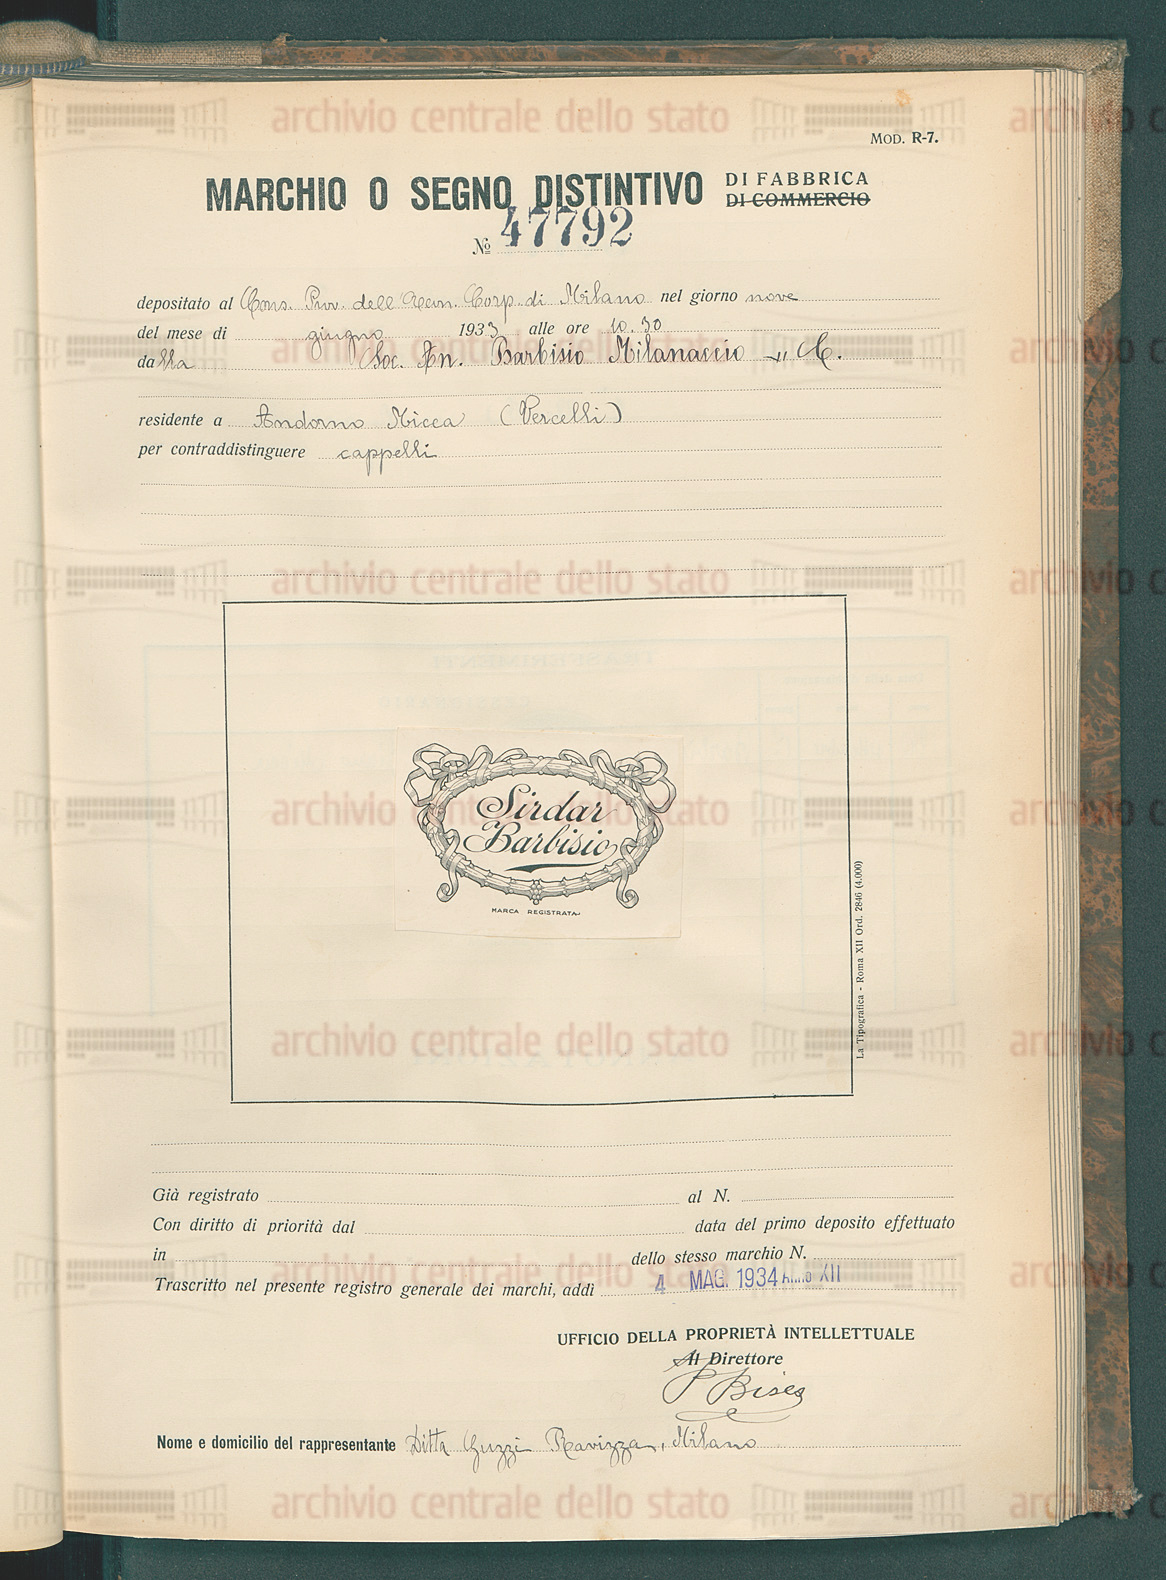 MOD. R-7.
MARCHIO O SEGNO DISTINTIVO DI FABBRICA
DI COMMERCIO
№ 47792
depositato al Cons. Prov. dell'Econ. Corp. di Milano nel giorno nove
del mese di giugno 1933 alle ore 10.30
dalla Soc. An. Barbisio Milanaccio & C.
residente a Andorno Micca (Vercelli)
per contraddistinguere cappelli
Sirdar
Barbisio
MARCA REGISTRATA
La Tipografica - Roma XII Ord. 2846 (4.000)
Già registrato al N.
Con diritto di priorità dal data del primo deposito effettuato
in dello stesso marchio N.
Trascritto nel presente registro generale dei marchi, addì 4 MAG. 1934 Anno XII
UFFICIO DELLA PROPRIETÀ INTELLETTUALE
Il Direttore
Nome e domicilio del rappresentante Ditta Guzzi Ravizza, Milano
archivio centrale dello stato